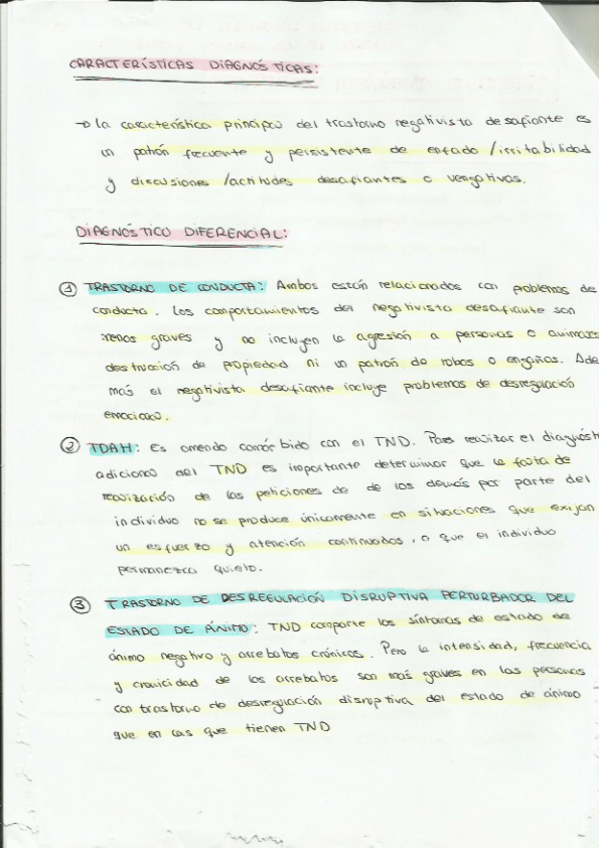 CARACTERÍSTICAS DIAGNÓSTICAS:
→ La característica principal del trastorno negativista desafiante es
un patrón frecuente y persistente de enfado / irritabilidad
y discusiones / actitudes desafiantes o vengativas.
DIAGNÓSTICO DIFERENCIAL:
① TRASTORNO DE CONDUCTA: Ambos están relacionados con problemas de
conducta. Los comportamientos del negativista desafiante son
menos graves y no incluyen la agresión a personas o animales
destrucción de propiedad ni un patrón de robos o engaños. Ade
más el negativista desafiante incluye problemas de desregulación
emocional.
② TDAH: Es amenudo comórbido con el TND. Para realizar el diagnóst
adicional del TND es importante determinar que la falta de
realización de las peticiones de de los demás por parte del
individuo no se produce únicamente en situaciones que exijan
un esfuerzo y atención continuados, o que el individuo
permanezca quieto.
③ TRASTORNO DE DESREGULACIÓN DISRUPTIVA PERTURBADOR DEL
ESTADO DE ÁNIMO: TND comparte los síntomas de estado de
ánimo negativo y arrebatos crónicos. Pero la intensidad, frecuencia
y cronicidad de los arrebatos son más graves en las personas
con trastorno de desregulación disruptiva del estado de ánimo
que en las que tienen TND